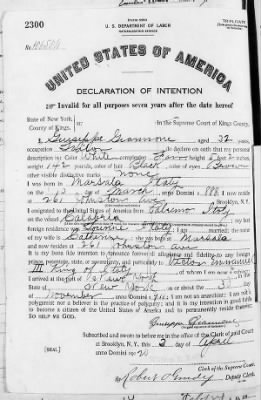 2300
U. S. DEPARTMENT OF LABOR
TRIPLICATE
UNITED STATES OF AMERICA
DECLARATION OF INTENTION
Invalid for all purposes seven years after the date hereof
State of New York,
County of Kings,
In the Supreme Court of Kings County.
I, Giuseppe Giannone, aged 32 years,
occupation, do declare on oath that my personal
description is: Color White, complexion, height 5 feet 2 inches,
weight 142 pounds, color of hair Black, color of eyes Brown
other visible distinctive marks none
I was born in Marsala Italy
on the day of March, anno Domini 1888; I now reside
at 261 Johnston Ave, Brooklyn, N.Y.
I emigrated to the United States of America from Palermo Italy
on the vessel; my last
foreign residence was Italy; I am married; the name
of my wife is; she was born at Marsala
and now resides at 261 Johnston Ave
It is my bona fide intention to renounce forever all allegiance and fidelity to any foreign
prince, potentate, state, or sovereignty, and particularly to Victor Emmanuel
III King of Italy
I arrived at the port of New York
State of New York, on or about the 30 day
of November, anno Domini; I am not an anarchist; I am not a
polygamist nor a believer in the practice of polygamy; and it is my intention in good faith
to become a citizen of the United States of America and to permanently reside therein:
SO HELP ME GOD.
Giuseppe Giannone
Subscribed and sworn to before me in the office of the Clerk of said Court
at Brooklyn, N.Y., this 3 day of April
anno Domini 1920
[SEAL]
Clerk of the Supreme Court.
Deputy Clerk